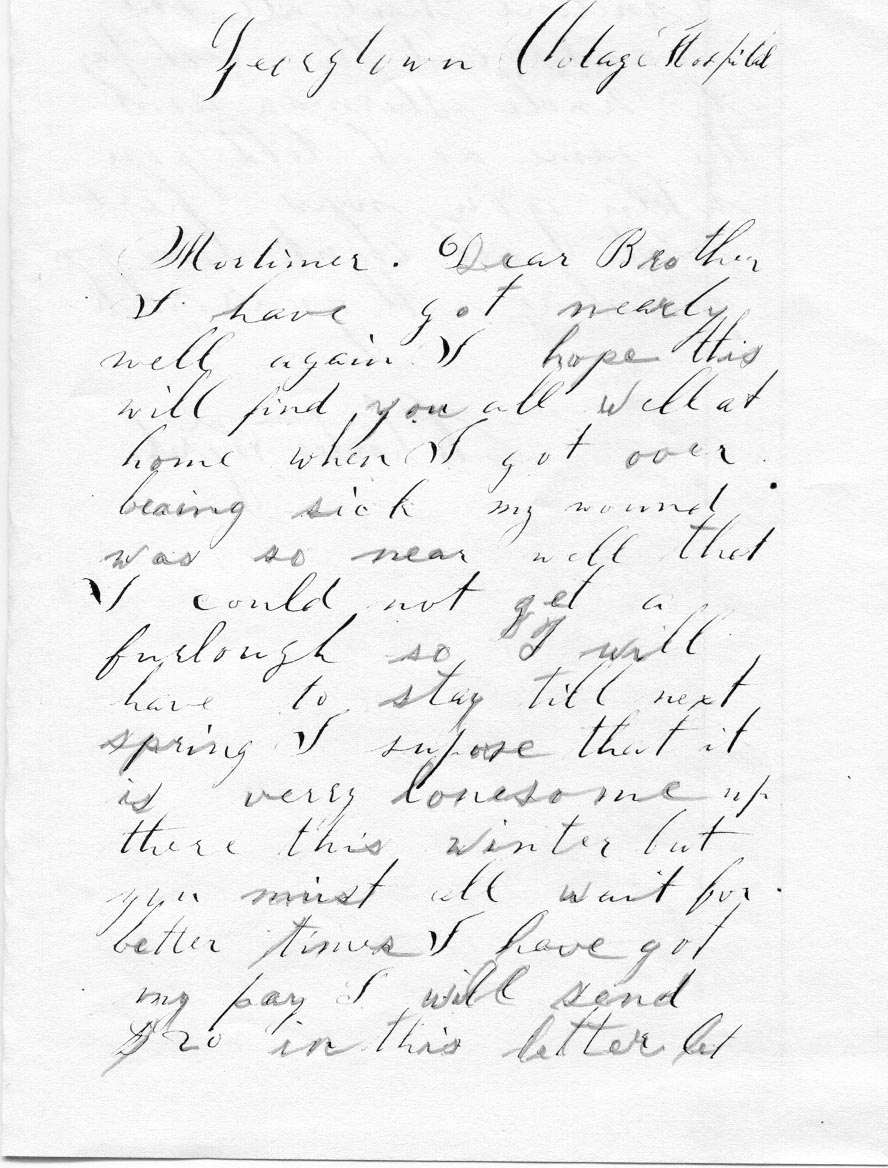 Georgtown Colage Hospital
Mortimer. Dear Brother
I have got nearly
well again I hope this
will find you all well at
home when I got over
beaing sick my wound
was so near well that
I could not get a
furlough so I will
have to stay till next
spring I supose that it
is verry lonesome up
there this winter but
you must all wait for
better times I have got
my pay I will send
$20 in this letter let